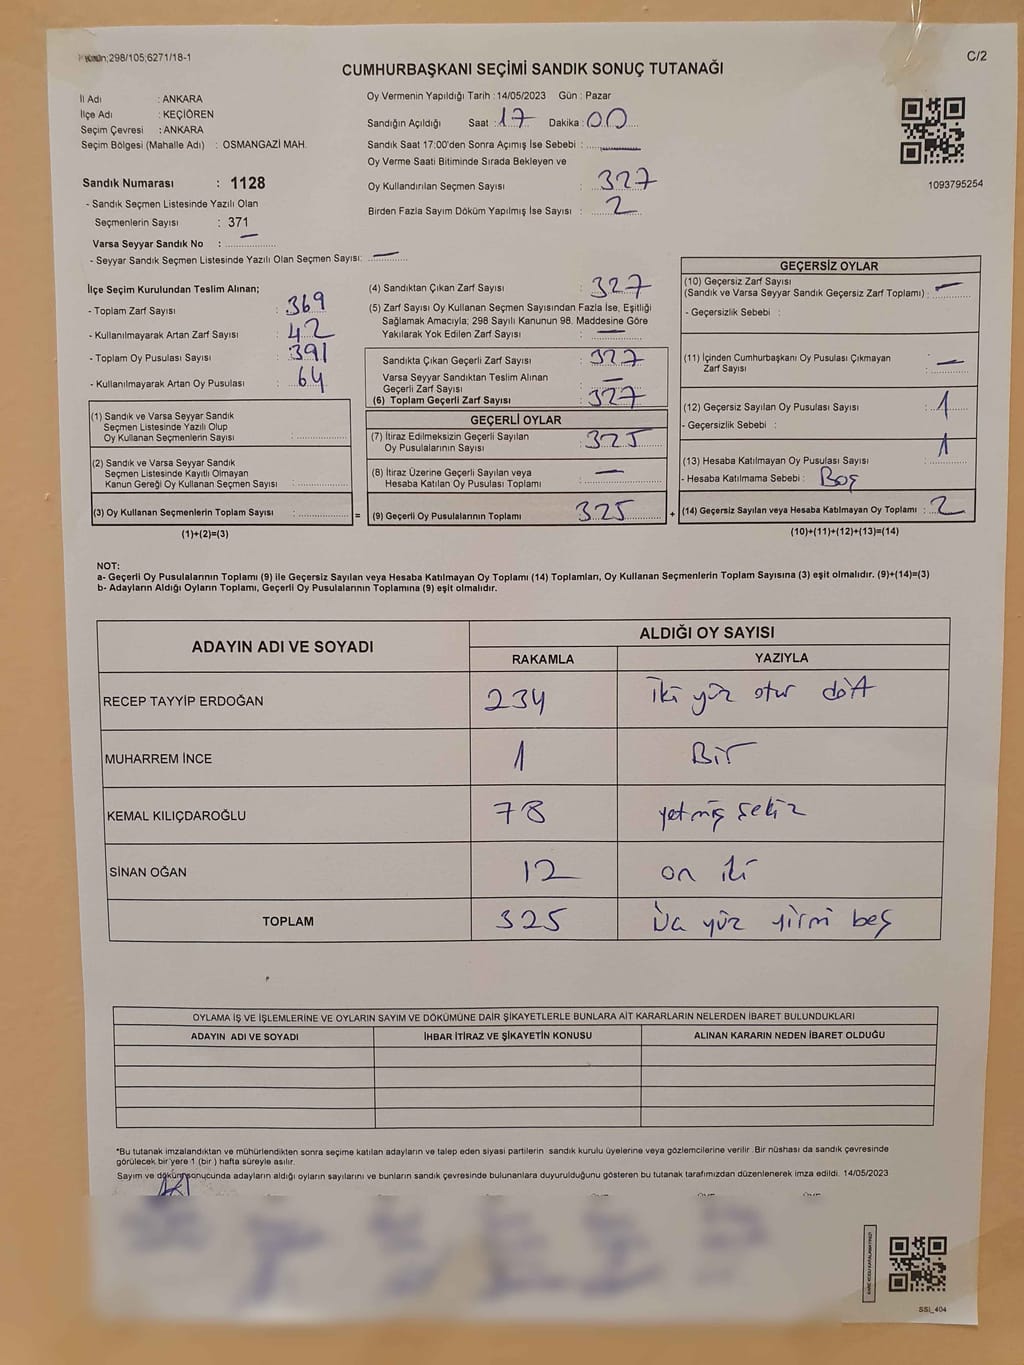 298/105;6271/18-1
C/2
CUMHURBAŞKANI SEÇİMİ SANDIK SONUÇ TUTANAĞI
İl Adı : ANKARA
İlçe Adı : KEÇİÖREN
Seçim Çevresi : ANKARA
Seçim Bölgesi (Mahalle Adı) : OSMANGAZİ MAH.
Sandık Numarası : 1128
- Sandık Seçmen Listesinde Yazılı Olan
Seçmenlerin Sayısı : 371
Varsa Seyyar Sandık No : —
- Seyyar Sandık Seçmen Listesinde Yazılı Olan Seçmen Sayısı: —
Oy Vermenin Yapıldığı Tarih : 14/05/2023 Gün : Pazar
Sandığın Açıldığı Saat : 17 Dakika : 00
Sandık Saat 17:00'den Sonra Açımış İse Sebebi :
Oy Verme Saati Bitiminde Sırada Bekleyen ve
Oy Kullandırılan Seçmen Sayısı : 327
Birden Fazla Sayım Döküm Yapılmış İse Sayısı : 2
1093795254
İlçe Seçim Kurulundan Teslim Alınan;
- Toplam Zarf Sayısı : 369
- Kullanılmayarak Artan Zarf Sayısı : 42
- Toplam Oy Pusulası Sayısı : 391
- Kullanılmayarak Artan Oy Pusulası : 64
(1) Sandık ve Varsa Seyyar Sandık
Seçmen Listesinde Yazılı Olup
Oy Kullanan Seçmenlerin Sayısı :
(2) Sandık ve Varsa Seyyar Sandık
Seçmen Listesinde Kayıtlı Olmayan
Kanun Gereği Oy Kullanan Seçmen Sayısı :
(3) Oy Kullanan Seçmenlerin Toplam Sayısı : =
(1)+(2)=(3)
(4) Sandıktan Çıkan Zarf Sayısı : 327
(5) Zarf Sayısı Oy Kullanan Seçmen Sayısından Fazla İse, Eşitliği
Sağlamak Amacıyla; 298 Sayılı Kanunun 98. Maddesine Göre
Yakılarak Yok Edilen Zarf Sayısı : —
Sandıkta Çıkan Geçerli Zarf Sayısı : 327
Varsa Seyyar Sandıktan Teslim Alınan
Geçerli Zarf Sayısı : —
(6) Toplam Geçerli Zarf Sayısı : 327
GEÇERLİ OYLAR
(7) İtiraz Edilmeksizin Geçerli Sayılan
Oy Pusulalarının Sayısı : 325
(8) İtiraz Üzerine Geçerli Sayılan veya
Hesaba Katılan Oy Pusulası Toplamı : —
(9) Geçerli Oy Pusulalarının Toplamı : 325 +
GEÇERSİZ OYLAR
(10) Geçersiz Zarf Sayısı
(Sandık ve Varsa Seyyar Sandık Geçersiz Zarf Toplamı) : —
- Geçersizlik Sebebi :
(11) İçinden Cumhurbaşkanı Oy Pusulası Çıkmayan
Zarf Sayısı : —
(12) Geçersiz Sayılan Oy Pusulası Sayısı : 1
- Geçersizlik Sebebi :
(13) Hesaba Katılmayan Oy Pusulası Sayısı : 1
- Hesaba Katılmama Sebebi : Boş
(14) Geçersiz Sayılan veya Hesaba Katılmayan Oy Toplamı : 2
(10)+(11)+(12)+(13)=(14)
NOT:
a- Geçerli Oy Pusulalarının Toplamı (9) ile Geçersiz Sayılan veya Hesaba Katılmayan Oy Toplamı (14) Toplamları, Oy Kullanan Seçmenlerin Toplam Sayısına (3) eşit olmalıdır. (9)+(14)=(3)
b- Adayların Aldığı Oyların Toplamı, Geçerli Oy Pusulalarının Toplamına (9) eşit olmalıdır.
ADAYIN ADI VE SOYADI
ALDIĞI OY SAYISI
RAKAMLA YAZIYLA
RECEP TAYYİP ERDOĞAN 234 iki yüz otuz dört
MUHARREM İNCE 1 Bir
KEMAL KILIÇDAROĞLU 78 yetmiş sekiz
SİNAN OĞAN 12 on iki
TOPLAM 325 üç yüz yirmi beş
OYLAMA İŞ VE İŞLEMLERİNE VE OYLARIN SAYIM VE DÖKÜMÜNE DAİR ŞİKAYETLERLE BUNLARA AİT KARARLARIN NELERDEN İBARET BULUNDUKLARI
ADAYIN ADI VE SOYADI İHBAR İTİRAZ VE ŞİKAYETİN KONUSU ALINAN KARARIN NEDEN İBARET OLDUĞU
*Bu tutanak imzalandıktan ve mühürlendikten sonra seçime katılan adayların ve talep eden siyasi partilerin sandık kurulu üyelerine veya gözlemcilerine verilir. Bir nüshası da sandık çevresinde
görülecek bir yere 1 (bir ) hafta süreyle asılır.
Sayım ve döküm sonucunda adayların aldığı oyların sayılarını ve bunların sandık çevresinde bulunanlara duyurulduğunu gösteren bu tutanak tarafımızdan düzenlenerek imza edildi. 14/05/2023
SSİ_404